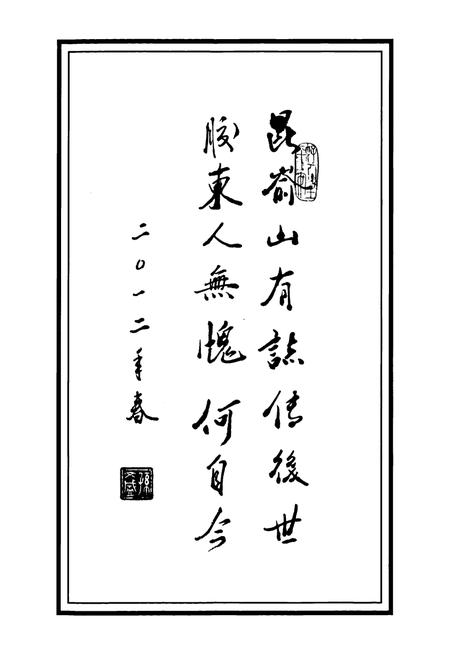 昆嵛山有誌傳後世
胶東人無愧何自今
二〇一二年春